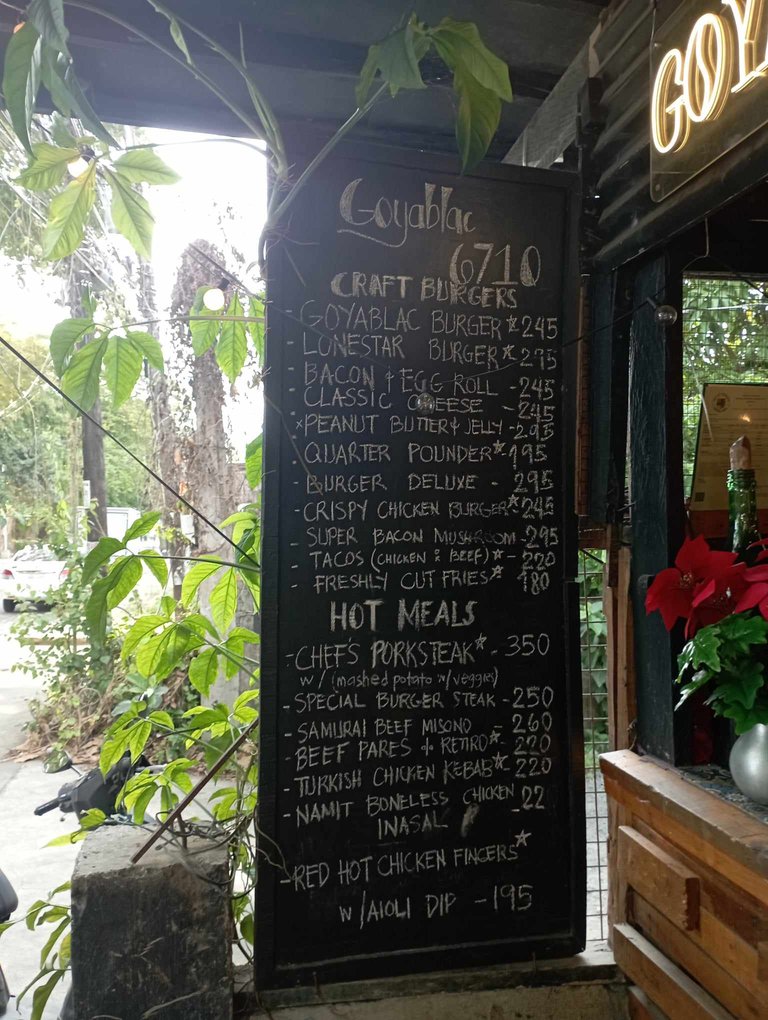 Goyablac
6710
CRAFT BURGERS
- GOYABLAC BURGER* 245
- LONESTAR BURGER* 275
- BACON & EGG ROLL - 245
CLASSIC CHEESE - 245
*PEANUT BUTTER & JELLY - 295
- QUARTER POUNDER* 195
- BURGER DELUXE - 295
- CRISPY CHICKEN BURGER* 245
- SUPER BACON MUSHROOM - 295
- TACOS (CHICKEN & BEEF)* - 220
- FRESHLY CUT FRIES* 180
HOT MEALS
- CHEF'S PORKSTEAK* - 350
w/ (mashed potato w/ veggies)
- SPECIAL BURGER STEAK - 250
- SAMURAI BEEF MISONO - 260
- BEEF PARES + RETIRO* - 220
- TURKISH CHICKEN KEBAB* 220
- NAMIT BONELESS CHICKEN - 22
INASAL
- RED HOT CHICKEN FINGERS*
w/AIOLI DIP - 195
GOYA